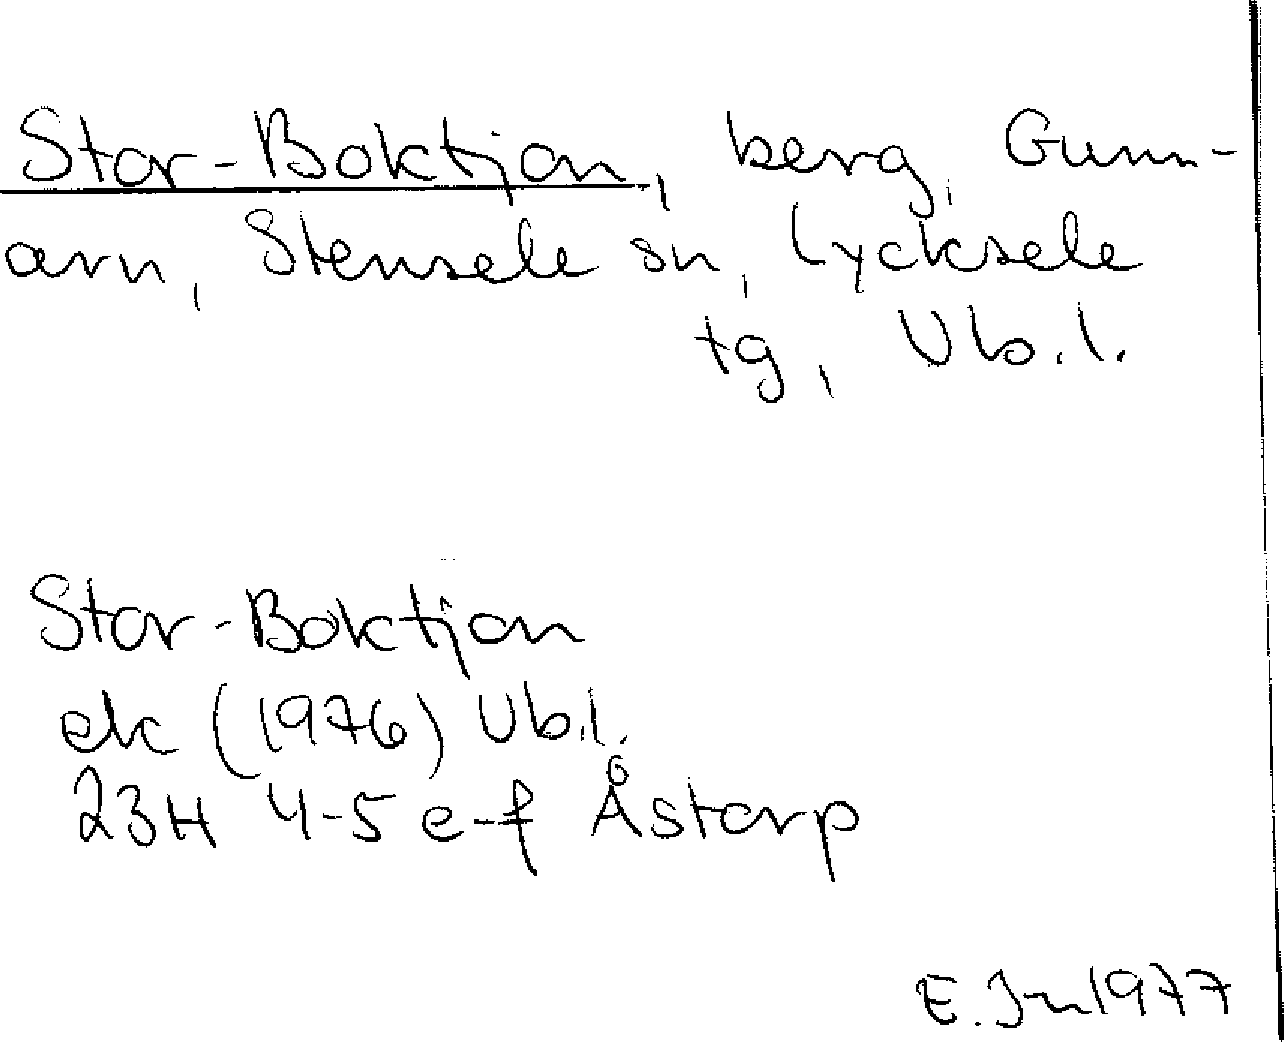 Stor-Boktjan, berg, Gunn-
arn, Stensele sn, Lycksele
tg, Vb.l.
Stor-Boktjan
ek (1976) Vb.l.
23H 4-5 e-f Åstorp
E. 1977